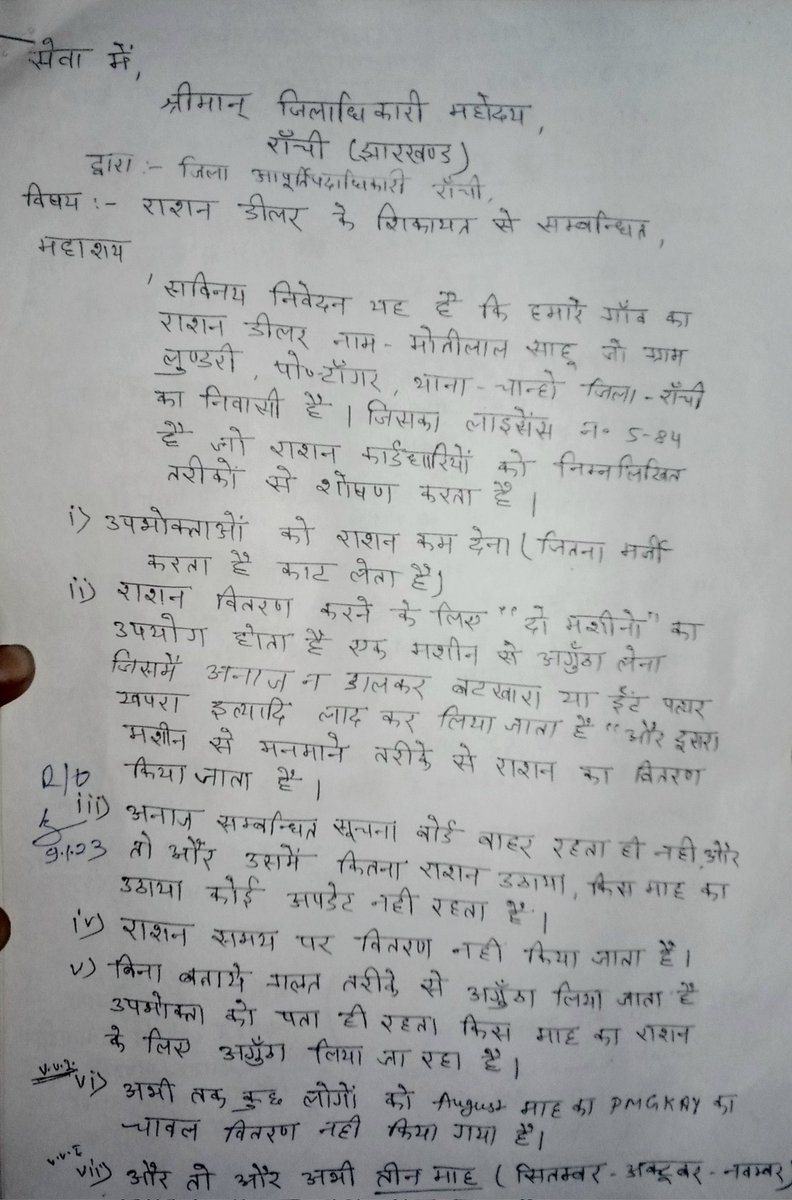 सेवा में,
श्रीमान् जिलाधिकारी महोदय,
राँची (झारखण्ड)
द्वारा :- जिला आपूर्तिपदाधिकारी राँची,
विषय :- राशन डीलर के शिकायत से सम्बन्धित,
महाशय
सविनय निवेदन यह है कि हमारे गाँव का
राशन डीलर नाम - मोतीलाल साहू जो ग्राम
लुण्डरी, पो० टाँगर, थाना - चान्हो जिला - राँची
का निवासी है। जिसका लाइसेंस न० 5-84
है जो राशन कार्डधारियों को निम्नलिखित
तरीकों से शोषण करता है।
i) उपभोक्ताओं को राशन कम देना (जितना मर्जी
करता है काट लेता है)
ii) राशन वितरण करने के लिए "दो मशीनो" का
उपयोग होता है एक मशीन से अगुँठा लेना
जिसमें अनाज न डालकर बटखारा या ईंट पत्थर
खपरा इत्यादि लाद कर लिया जाता है "और दुसरा
मशीन से मनमाने तरीके से राशन का वितरण
किया जाता है।
iii) अनाज सम्बन्धित सूचना बोर्ड बाहर रहता ही नही और
9.1.23
तो और उसमें कितना राशन उठाया, किस माह का
उठाया कोई अपडेट नही रहता है।
iv) राशन समय पर वितरण नही किया जाता है।
v) बिना बताये गलत तरीके से अगुँठा लिया जाता है
उपभोक्ता को पता ही रहता किस माह का राशन
के लिए अगुँठा लिया जा रहा है।
v.v.I. vi) अभी तक कुछ लोगों को August माह का PMGKAY का
चावल वितरण नही किया गया है।
v.v.I vii) और तो और अभी तीन माह (सितम्बर - अक्टूबर - नवम्बर)